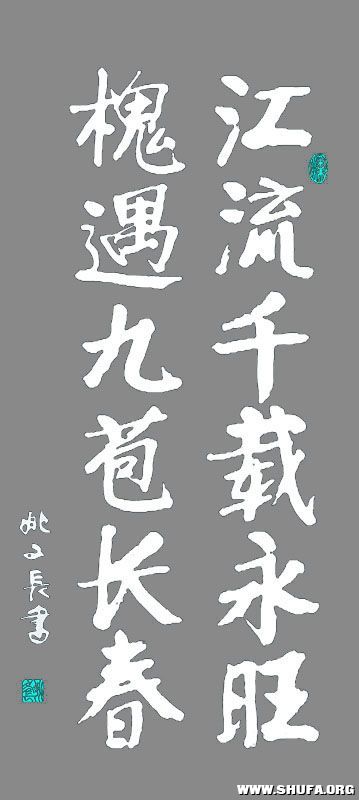 江流千载永旺
槐遇九苞长春
长書
WWW.SHUFA.ORG